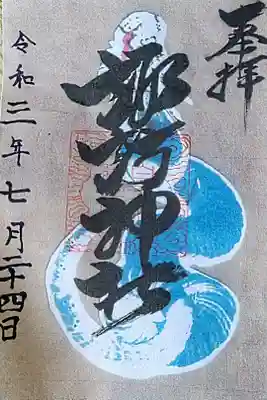 奉拝
神社
令和二年七月二十四日